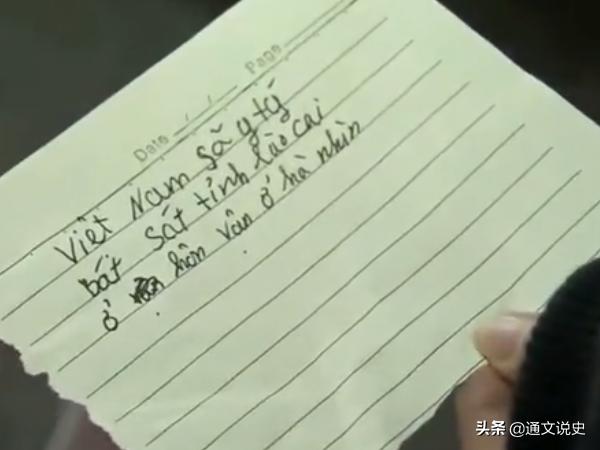 Date / / Page
Việt Nam sã y tý
bát sát tỉnh Lào cai
ở hôn vân ở hà nhìn
头条 @通文说史